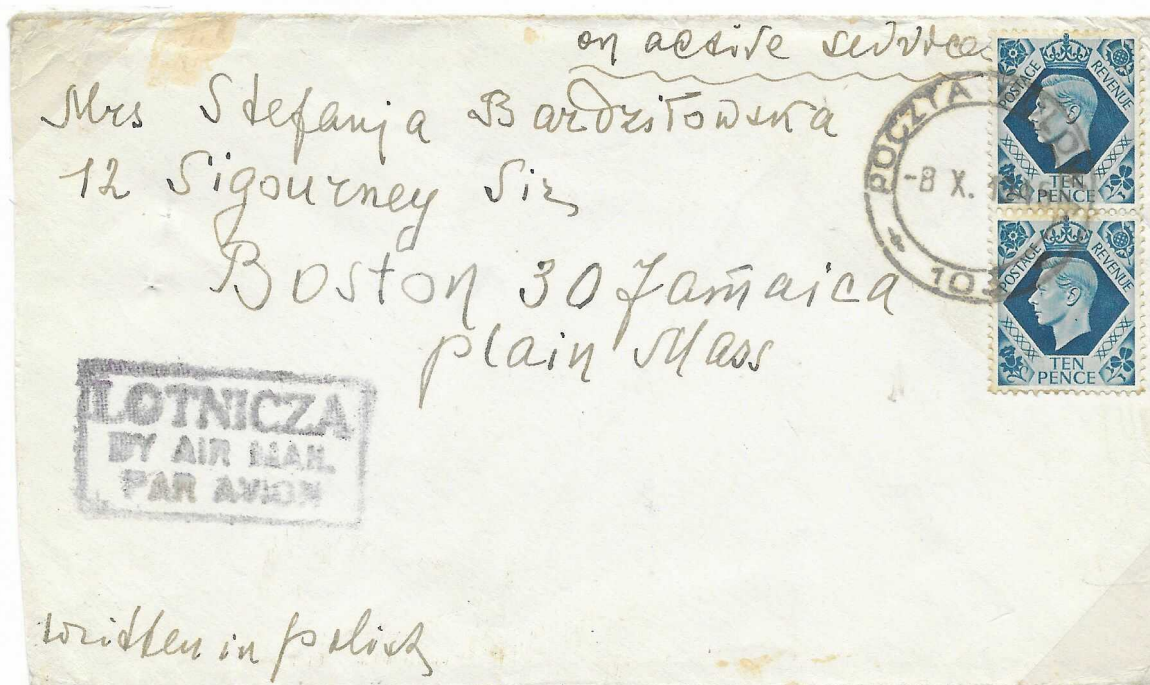 on active service
Mrs Stefanja Bardziłowska
12 Sigourney Str
Boston 30 Jamaica
plain Mass
POSTAGE REVENUE
TEN
PENCE
POSTAGE REVENUE
TEN
PENCE
POCZTA
-8 X.
103
LOTNICZA
BY AIR MAIL
PAR AVION
written in polish